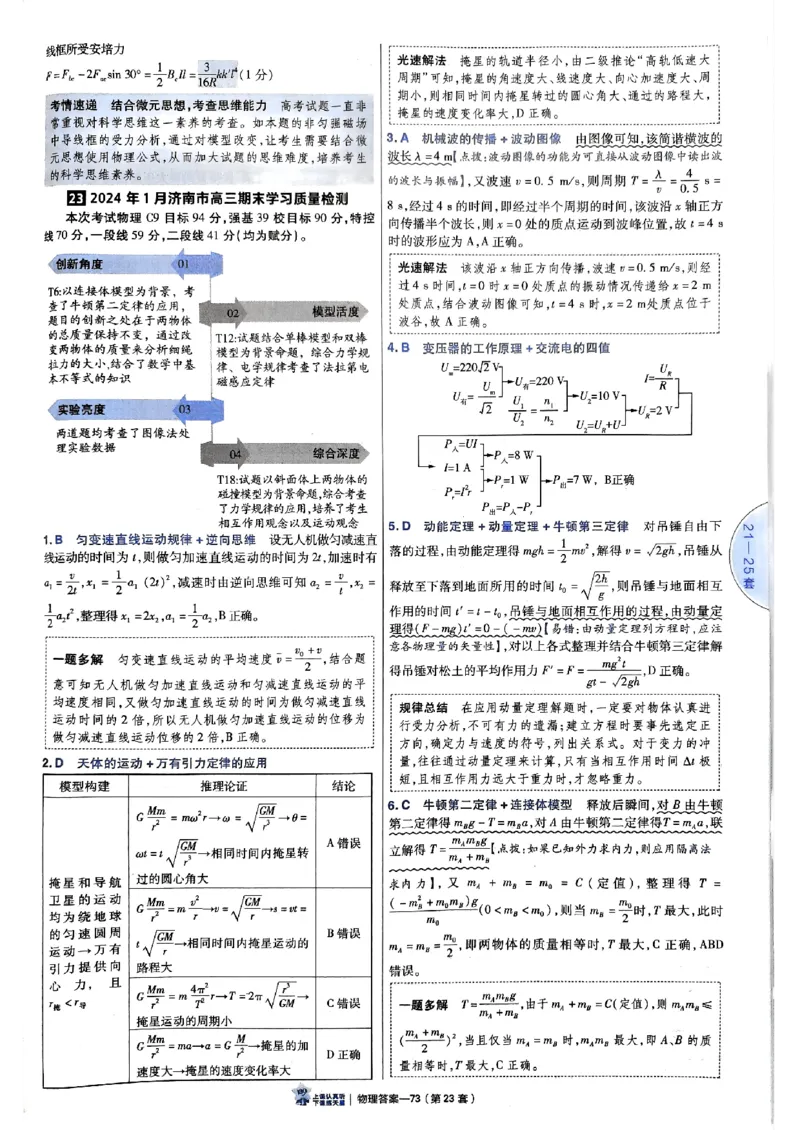 线框所受安培力
F=F_bc-2F_ac sin 30°=1/2 B_x Il=3/16R kk'l⁴(1分)
考情速递 结合微元思想,考查思维能力 高考试题一直非
常重视对科学思维这一素养的考查。如本题的非匀强磁场
中导线框的受力分析,通过对模型改变,让考生需要结合微
元思想使用物理公式,从而加大试题的思维难度,培养考生
的科学思维素养。
23 2024年1月济南市高三期末学习质量检测
本次考试物理C9目标94分,强基39校目标90分,特控
线70分,一段线59分,二段线41分(均为赋分)。
创新角度 01
T6:以连接体模型为背景，考
查了牛顿第二定律的应用，
题目的创新之处在于两物体
的总质量保持不变，通过改
变两物体的质量来分析细绳
拉力的大小,结合了数学中基
本不等式的知识
02 模型活度
T12:试题结合单棒模型和双棒
模型为背景命题，综合力学规
律、电学规律考查了法拉第电
磁感应定律
实验亮度 03
两道题均考查了图像法处
理实验数据
04 综合深度
T18:试题以斜面体上两物体的
碰撞模型为背景命题,综合考查
了力学规律的应用,培养了考生
相互作用观念以及运动观念
1. B 匀变速直线运动规律+逆向思维 设无人机做匀减速直
线运动的时间为t,则做匀加速直线运动的时间为2t,加速时有
a₁=v/2t,x₁=1/2 a₁(2t)²,减速时由逆向思维可知a₂=v/t,x₂=
1/2 a₂t²,整理得x₁=2x₂,a₁=1/2 a₂,B正确。
一题多解 匀变速直线运动的平均速度v̄=(v₀+v)/2,结合题
意可知无人机做匀加速直线运动和匀减速直线运动的平
均速度相同,又做匀加速直线运动的时间为做匀减速直线
运动时间的2倍,所以无人机做匀加速直线运动的位移为
做匀减速直线运动位移的2倍,B正确。
2. D 天体的运动+万有引力定律的应用
模型构建 推理论证 结论
掩星和导航
卫星的运动
均为绕地球
的匀速圆周
运动→万有
引力提供向
心力，且
r掩<r导
G Mm/r²=mω²r→ω=√(GM/r³)→θ=
ωt=t√(GM/r³)→相同时间内掩星转
过的圆心角大
A错误
G Mm/r²=m v²/r→v=√(GM/r)→s=vt=
t√(GM/r)→相同时间内掩星运动的
路程大
B错误
G Mm/r²=m 4π²/T² r→T=2π√(r³/GM)→
掩星运动的周期小
C错误
G Mm/r²=ma→a=G M/r²→掩星的加
速度大→掩星的速度变化率大
D正确
光速解法 掩星的轨道半径小,由二级推论“高轨低速大
周期”可知,掩星的角速度大、线速度大、向心加速度大、周
期小,则相同时间内掩星转过的圆心角大、通过的路程大，
掩星的速度变化率大,D正确。
3. A 机械波的传播+波动图像 由图像可知,该简谐横波的
波长λ=4 m【点拨:波动图像的功能为可直接从波动图像中读出波
的波长与振幅】,又波速v=0.5 m/s,则周期T=λ/v=4/0.5 s=
8 s,经过4 s的时间,即经过半个周期的时间,该波沿x轴正方
向传播半个波长,则x=0处的质点运动到波峰位置,故t=4 s
时的波形应为A,A正确。
光速解法 该波沿x轴正方向传播,波速v=0.5 m/s,则经
过4 s时间,t=0时x=0处质点的振动情况传递给x=2 m
处质点,结合波动图像可知,t=4 s时,x=2 m处质点位于
波谷,故A正确。
4. B 变压器的工作原理+交流电的四值
U_m=220√2 V
U有=U_m/√2
U有=220 V
U₁/U₂=n₁/n₂
U₂=10 V
U₂=U_R+U
U_R=2 V
I=U_R/R
I=1 A
P入=UI
P_r=I²r
P入=8 W
P_r=1 W
P出=P入-P_r
P出=7 W，B正确
5. D 动能定理+动量定理+牛顿第三定律 对吊锤自由下
落的过程,由动能定理得mgh=1/2 mv²,解得v=√(2gh),吊锤从
释放至下落到地面所用的时间t₀=√(2h/g),则吊锤与地面相互
作用的时间t'=t-t₀,吊锤与地面相互作用的过程,由动量定
理得(F-mg)t'=0-(-mv)【易错:由动量定理列方程时,应注
意各物理量的矢量性】,对以上各式整理并结合牛顿第三定律解
得吊锤对松土的平均作用力F'=F=mg²t/(gt-√(2gh)),D正确。
规律总结 在应用动量定理解题时,一定要对物体认真进
行受力分析,不可有力的遗漏;建立方程时要事先选定正
方向,确定力与速度的符号,列出关系式。对于变力的冲
量,往往通过动量定理来计算,只有当相互作用时间Δt极
短,且相互作用力远大于重力时,才忽略重力。
6. C 牛顿第二定律+连接体模型 释放后瞬间,对B由牛顿
第二定律得m_Bg-T=m_Ba,对A由牛顿第二定律得T=m_Aa,联
立解得T=m_Am_Bg/(m_A+m_B)【点拨:如果已知外力求内力,则应用隔离法
求内力】,又m_A+m_B=m₀=C(定值),整理得T=
(-m_B²+m₀m_B)g/m₀(0<m_B<m₀),则当m_B=m₀/2时,T最大,此时
m_A=m_B=m₀/2,即两物体的质量相等时,T最大,C正确,ABD
错误。
一题多解 T=m_Am_Bg/(m_A+m_B),由于m_A+m_B=C(定值),则m_Am_B≤
((m_A+m_B)/2)²,当且仅当m_A=m_B时,m_Am_B最大,即A、B的质
量相等时,T最大,C正确。
21—25套
上课认真听
下课练天星
物理答案—73(第23套)